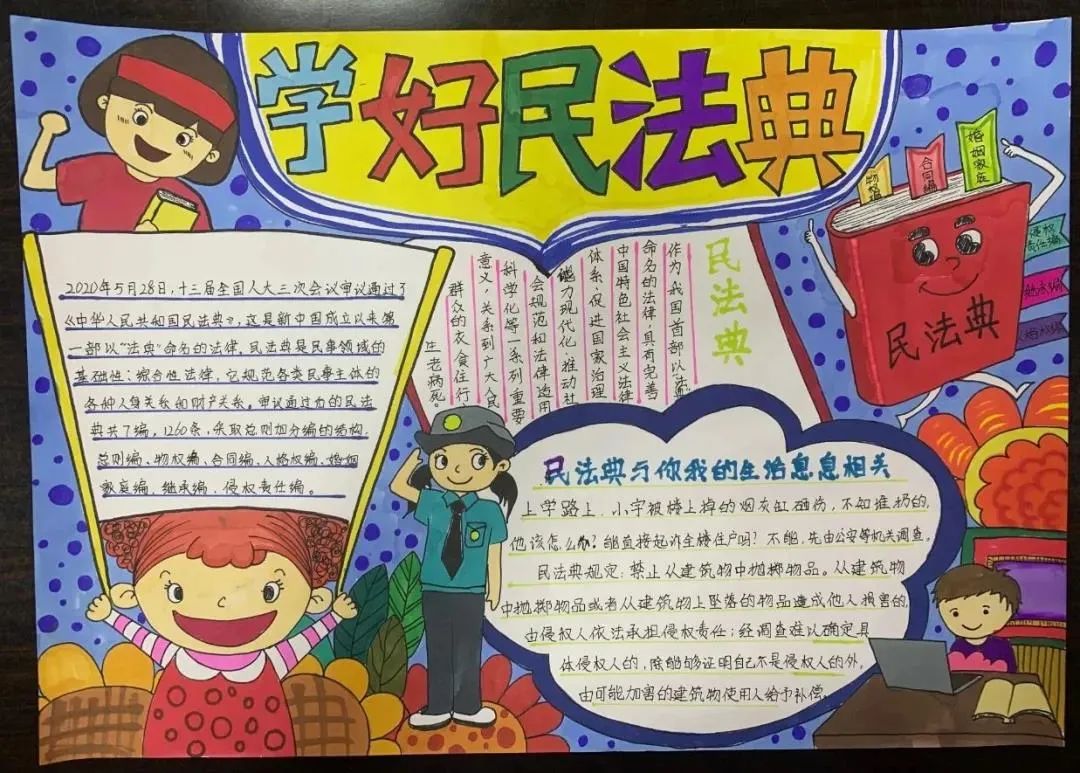 学好民法典
2020年5月28日,十三届全国人大三次会议审议通过了
《中华人民共和国民法典》,这是新中国成立以来第
一部以“法典”命名的法律,民法典是民事领域的
基础性:综合性法律,它规范各类民事主体的
各种人身关系和财产关系。审议通过的民法
典共7编、1260条,采取总则加分编的结构
总则编、物权编、合同编、人格权编、婚姻
家庭编、继承编、侵权责任编。
民法典
作为我国首部以法典
命名的法律,具有完善
中国特色社会主义法律
体系,促进国家治理
能力现代化,推动社
会规范和法律适用
科学化等一系列重要
意义,关系到广大人民
群众的衣食住行、
生老病死。
物权编
合同编
婚姻家庭
侵权
责任编
民法典
民法典与你我的生活息息相关
上学路上,小宇被楼上掉的烟灰缸砸伤,不知谁扔的,
他该怎么办?能直接起诉全楼住户吗?不能,先由公安等机关调查。
民法典规定:禁止从建筑物中抛掷物品。从建筑物
中抛掷物品或者从建筑物上坠落的物品造成他人损害的,
由侵权人依法承担侵权责任;经调查难以确定具
体侵权人的,除能够证明自己不是侵权人的外,
由可能加害的建筑物使用人给予补偿。